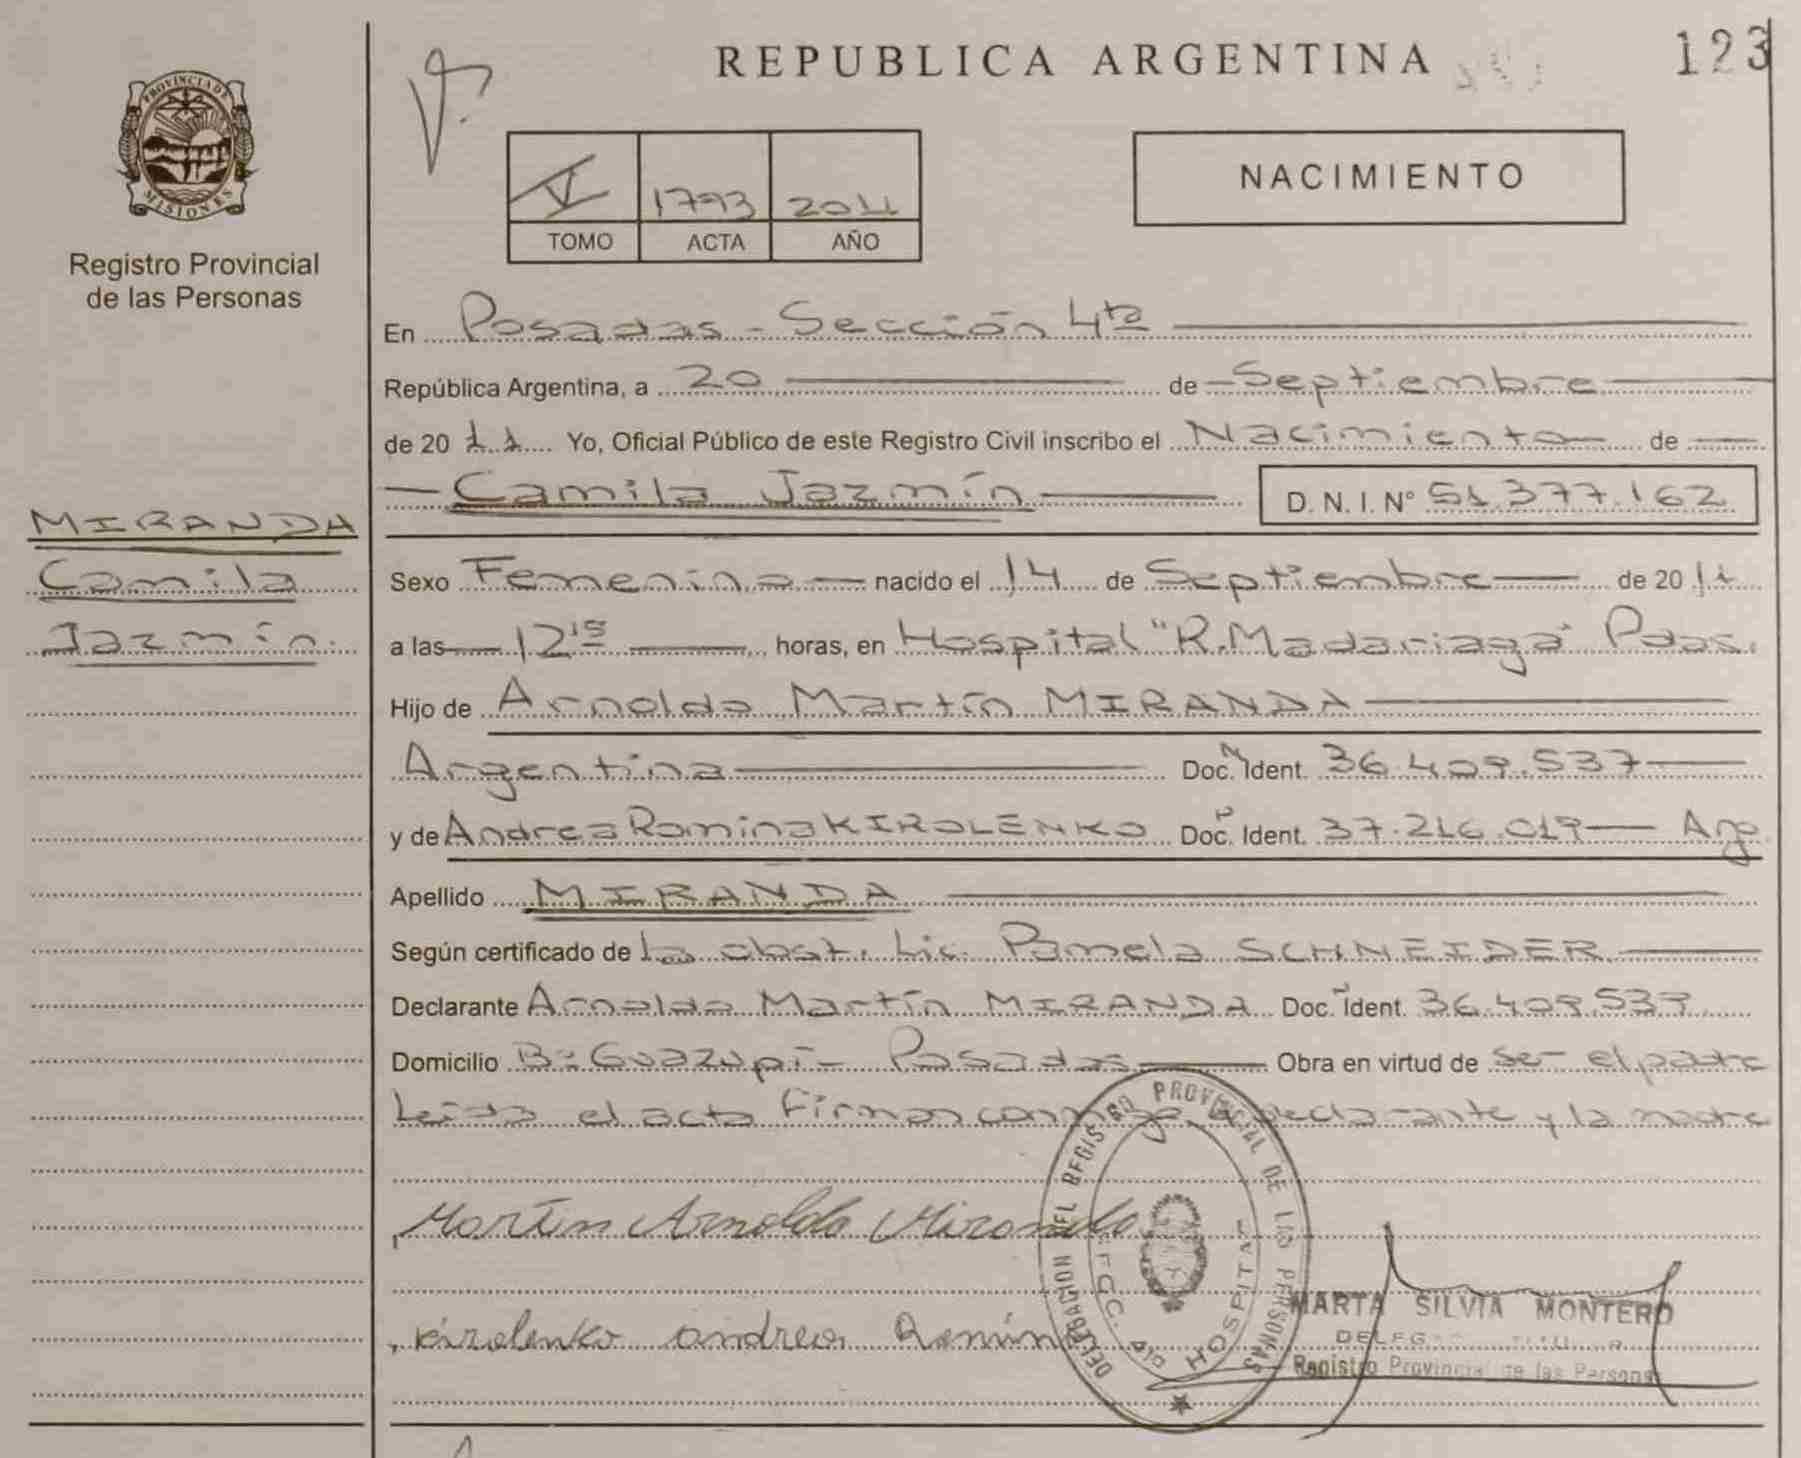 REPUBLICA ARGENTINA
123
PROVINCIA DE
MISIONES
Registro Provincial
de las Personas
V 1793 2011
TOMO ACTA AÑO
NACIMIENTO
En Posadas - Sección 4ta
República Argentina, a 20 de Septiembre
de 20 11 Yo, Oficial Público de este Registro Civil inscribo el Nacimiento de
Camila Jazmín D. N. I. Nº 51.377.162
MIRANDA
Camila
Jazmín.
Sexo Femenina nacido el 14 de Septiembre de 20 11
a las 12 15 horas, en Hospital "R. Madariaga" Pdas.
Hijo de Arnoldo Martín MIRANDA
Argentina Doc. Ident. 36.409.537
y de Andrea Romina KIROLENKO Doc. Ident. 37.216.019 Arg
Apellido MIRANDA
Según certificado de La obst. Lic. Pamela SCHNEIDER
Declarante Arnoldo Martín MIRANDA Doc. Ident. 36.409.537
Domicilio Bº Guazupí - Posadas Obra en virtud de ser el padre
Leída el acta firman conmigo declarante y la madre
Martín Arnoldo Miranda
Kirolenko andrea Romina
DELEGACION DEL REGISTRO PROVINCIAL DE LAS PERSONAS
HOSPITAL
MARTA SILVIA MONTERO
Registro Provincial de las Personas